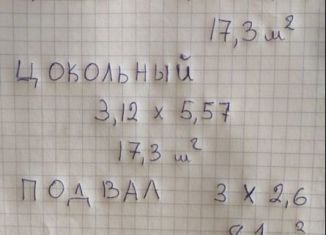 17,3 м²
ЦОКОЛЬНЫЙ
3,12 x 5,57
17,3 м²
ПОДВАЛ 3 X 2,6